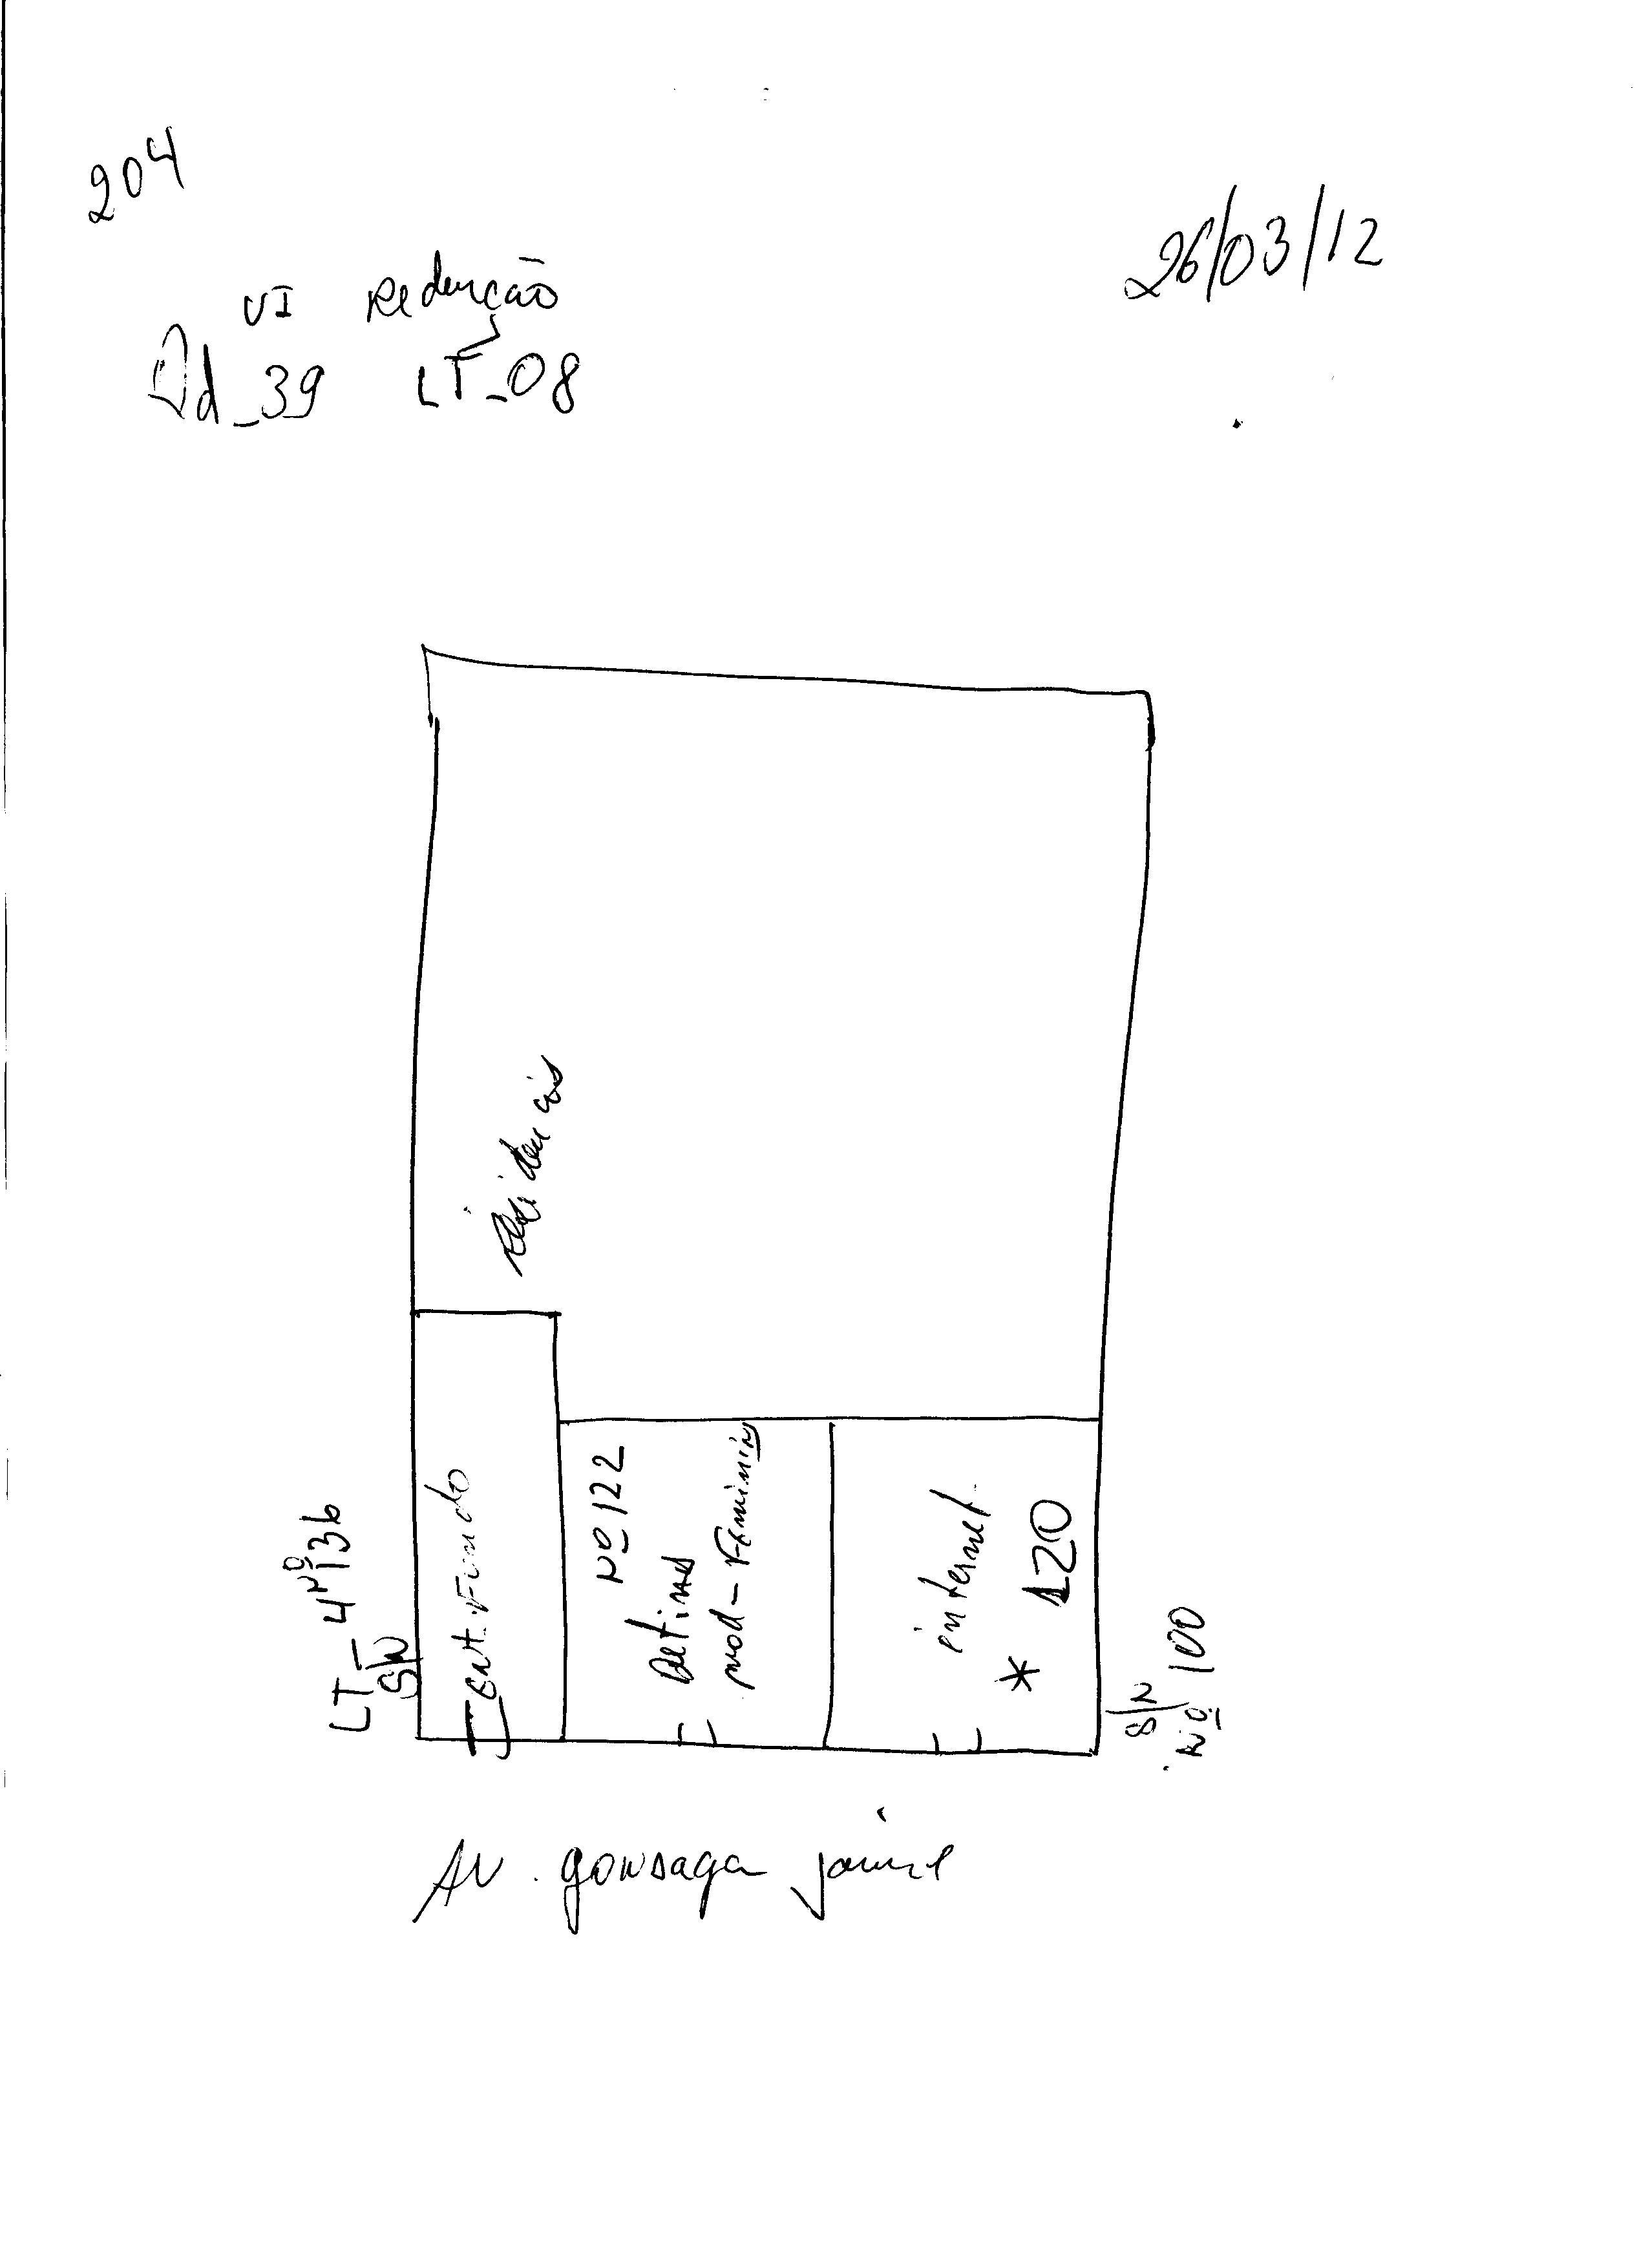 204
26/03/12
VI Redenção
Qd_39 LT_08
Residencia
LT_4 Nº 136
S/N
Ent. Fundo
Nº 122
mod-Feminin
internet
* 120
S/N
Nº 100
Av. gonsaga jaime